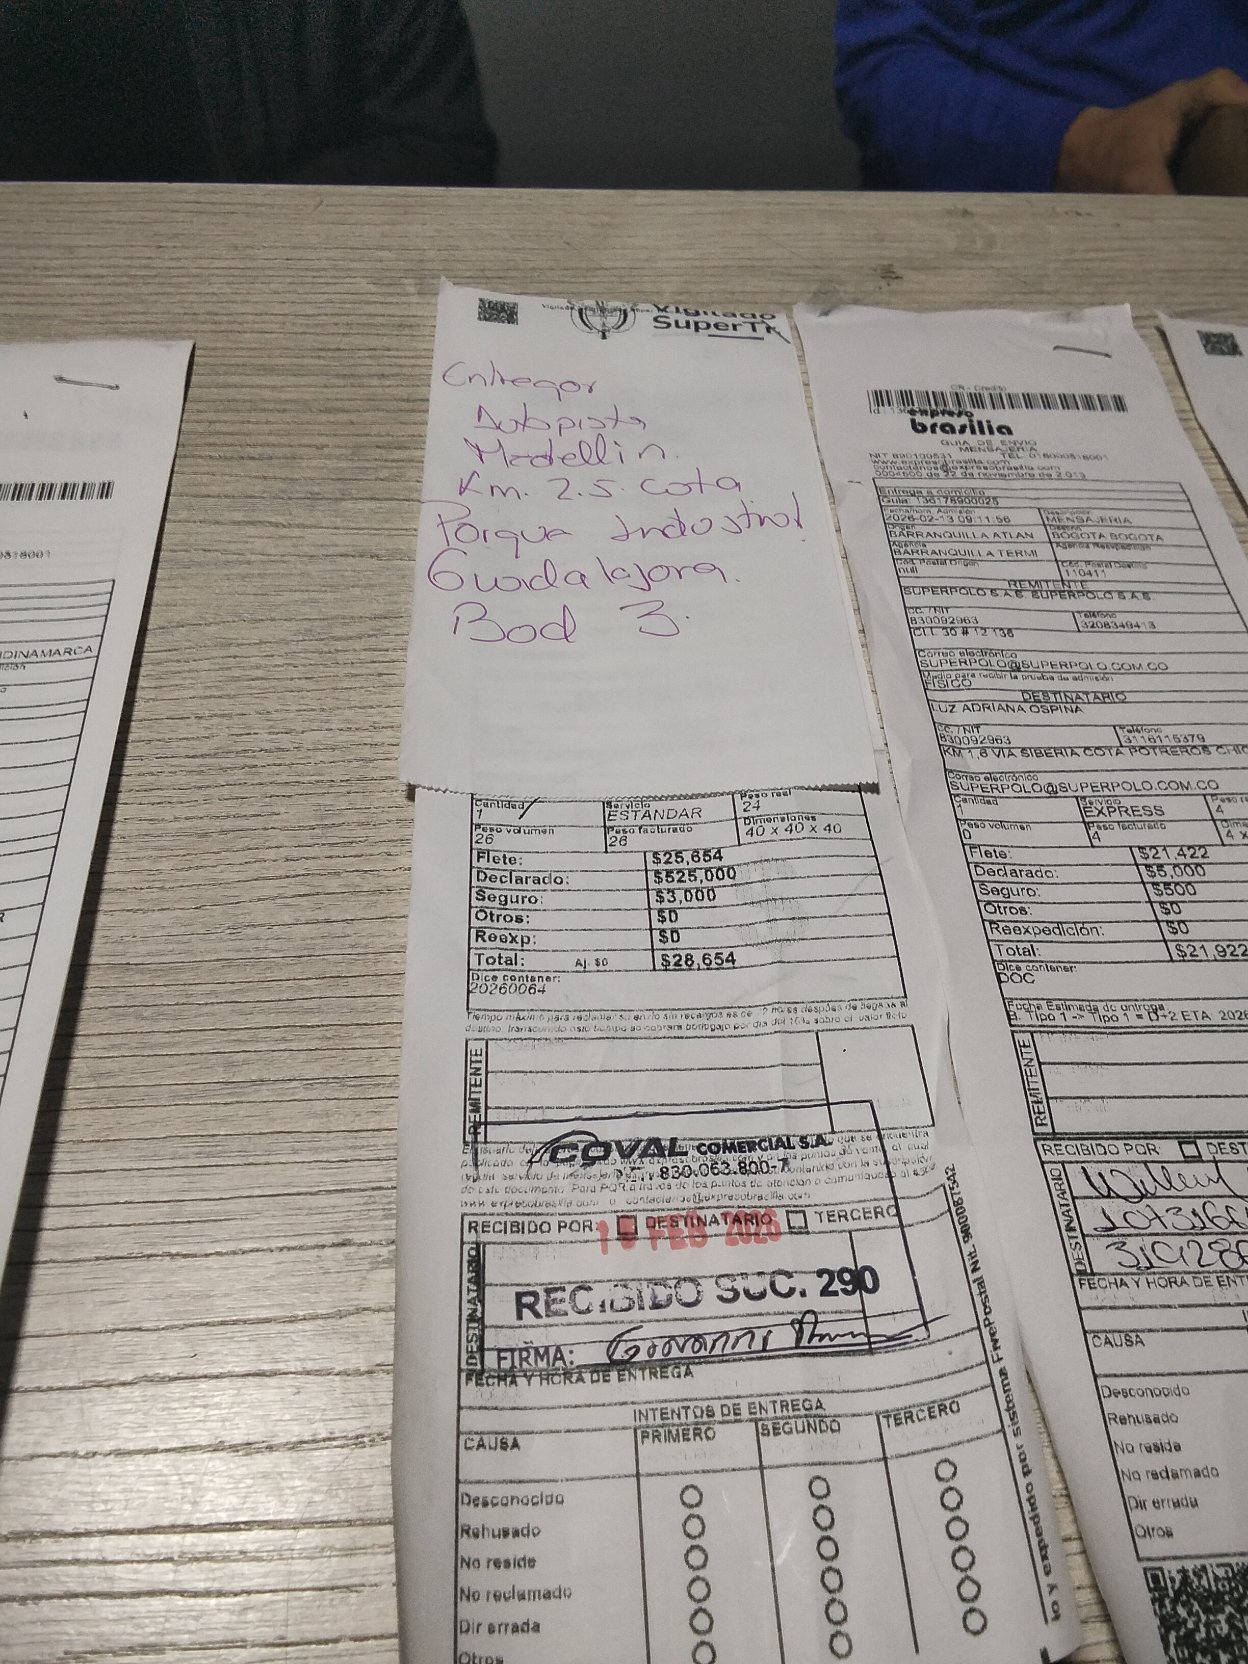 0818001
DINAMARCA
Vigilado
SuperTr
Entregar
Autopista
Medellin.
Km. 2.5. cota
Parque Industrial
Guadalajara.
Bod 3.
Cantidad
1
Servicio
ESTANDAR
Peso real
24
Peso volumen
26
Peso facturado
26
Dimensiones
40 x 40 x 40
Flete: $25,654
Declarado: $525,000
Seguro: $3,000
Otros: $0
Reexp: $0
Total: Aj. $0 $28,654
Dice contener:
20260064
REMITENTE
COVAL COMERCIAL S.A.
830.063.800-7
RECIBIDO POR: DESTINATARIO TERCERO
FEB 2026
RECIBIDO SUC. 290
DESTINATARIO
FIRMA: Giovanni
FECHA Y HORA DE ENTREGA
INTENTOS DE ENTREGA
CAUSA PRIMERO SEGUNDO TERCERO
Desconocido
Rehusado
No reside
No reclamado
Dir errada
Otros
o y expedido por Sistema FivePostal Nit. 900087542
CR - Credito
expreso
brasilia
GUIA DE ENVIO
MENSAJERIA
NIT 890100531 TEL. 018000518001
www.expresobrasilia.com
contactenos@expresobrasilia.com
0004600 de 22 de noviembre de 2.013
Entrega a domicilio
Guia: 136178900025
Fecha/hora Admisión
2026-02-13 09:11:56
Descripcion
MENSAJERIA
Origen
BARRANQUILLA ATLAN
Destino
BOGOTA BOGOTA
Agencia
BARRANQUILLA TERMI
Agencia Reexpedición
Cod. Postal Origen
null
Cod. Postal Destino
110411
REMITENTE
SUPERPOLO S.A.S. SUPERPOLO S.A.S.
CC. /NIT
830092963
Teléfono
3208349413
CLL 30 # 12 136
Correo electrónico
SUPERPOLO@SUPERPOLO.COM.CO
Medio para recibir la prueba de admisión
FISICO
DESTINATARIO
LUZ ADRIANA OSPINA
CC. /NIT
830092963
Teléfono
3116115379
KM 1,8 VIA SIBERIA COTA POTREROS CHIC
Correo electrónico
SUPERPOLO@SUPERPOLO.COM.CO
Cantidad
1
Servicio
EXPRESS
Peso re
4
Peso volumen
0
Peso facturado
4
Dime
4 x
Flete: $21,422
Declarado: $5,000
Seguro: $500
Otros: $0
Reexpedición: $0
Total: $21,922
Dice contener:
DOC
Fecha Estimada de entrega
B. Tipo 1 -> Tipo 1 = D+2 ETA: 2026
REMITENTE
RECIBIDO POR: DEST
DESTINATARIO
FECHA Y HORA DE ENT
CAUSA
Desconocido
Rehusado
No reside
No reclamado
Dir errada
Otros